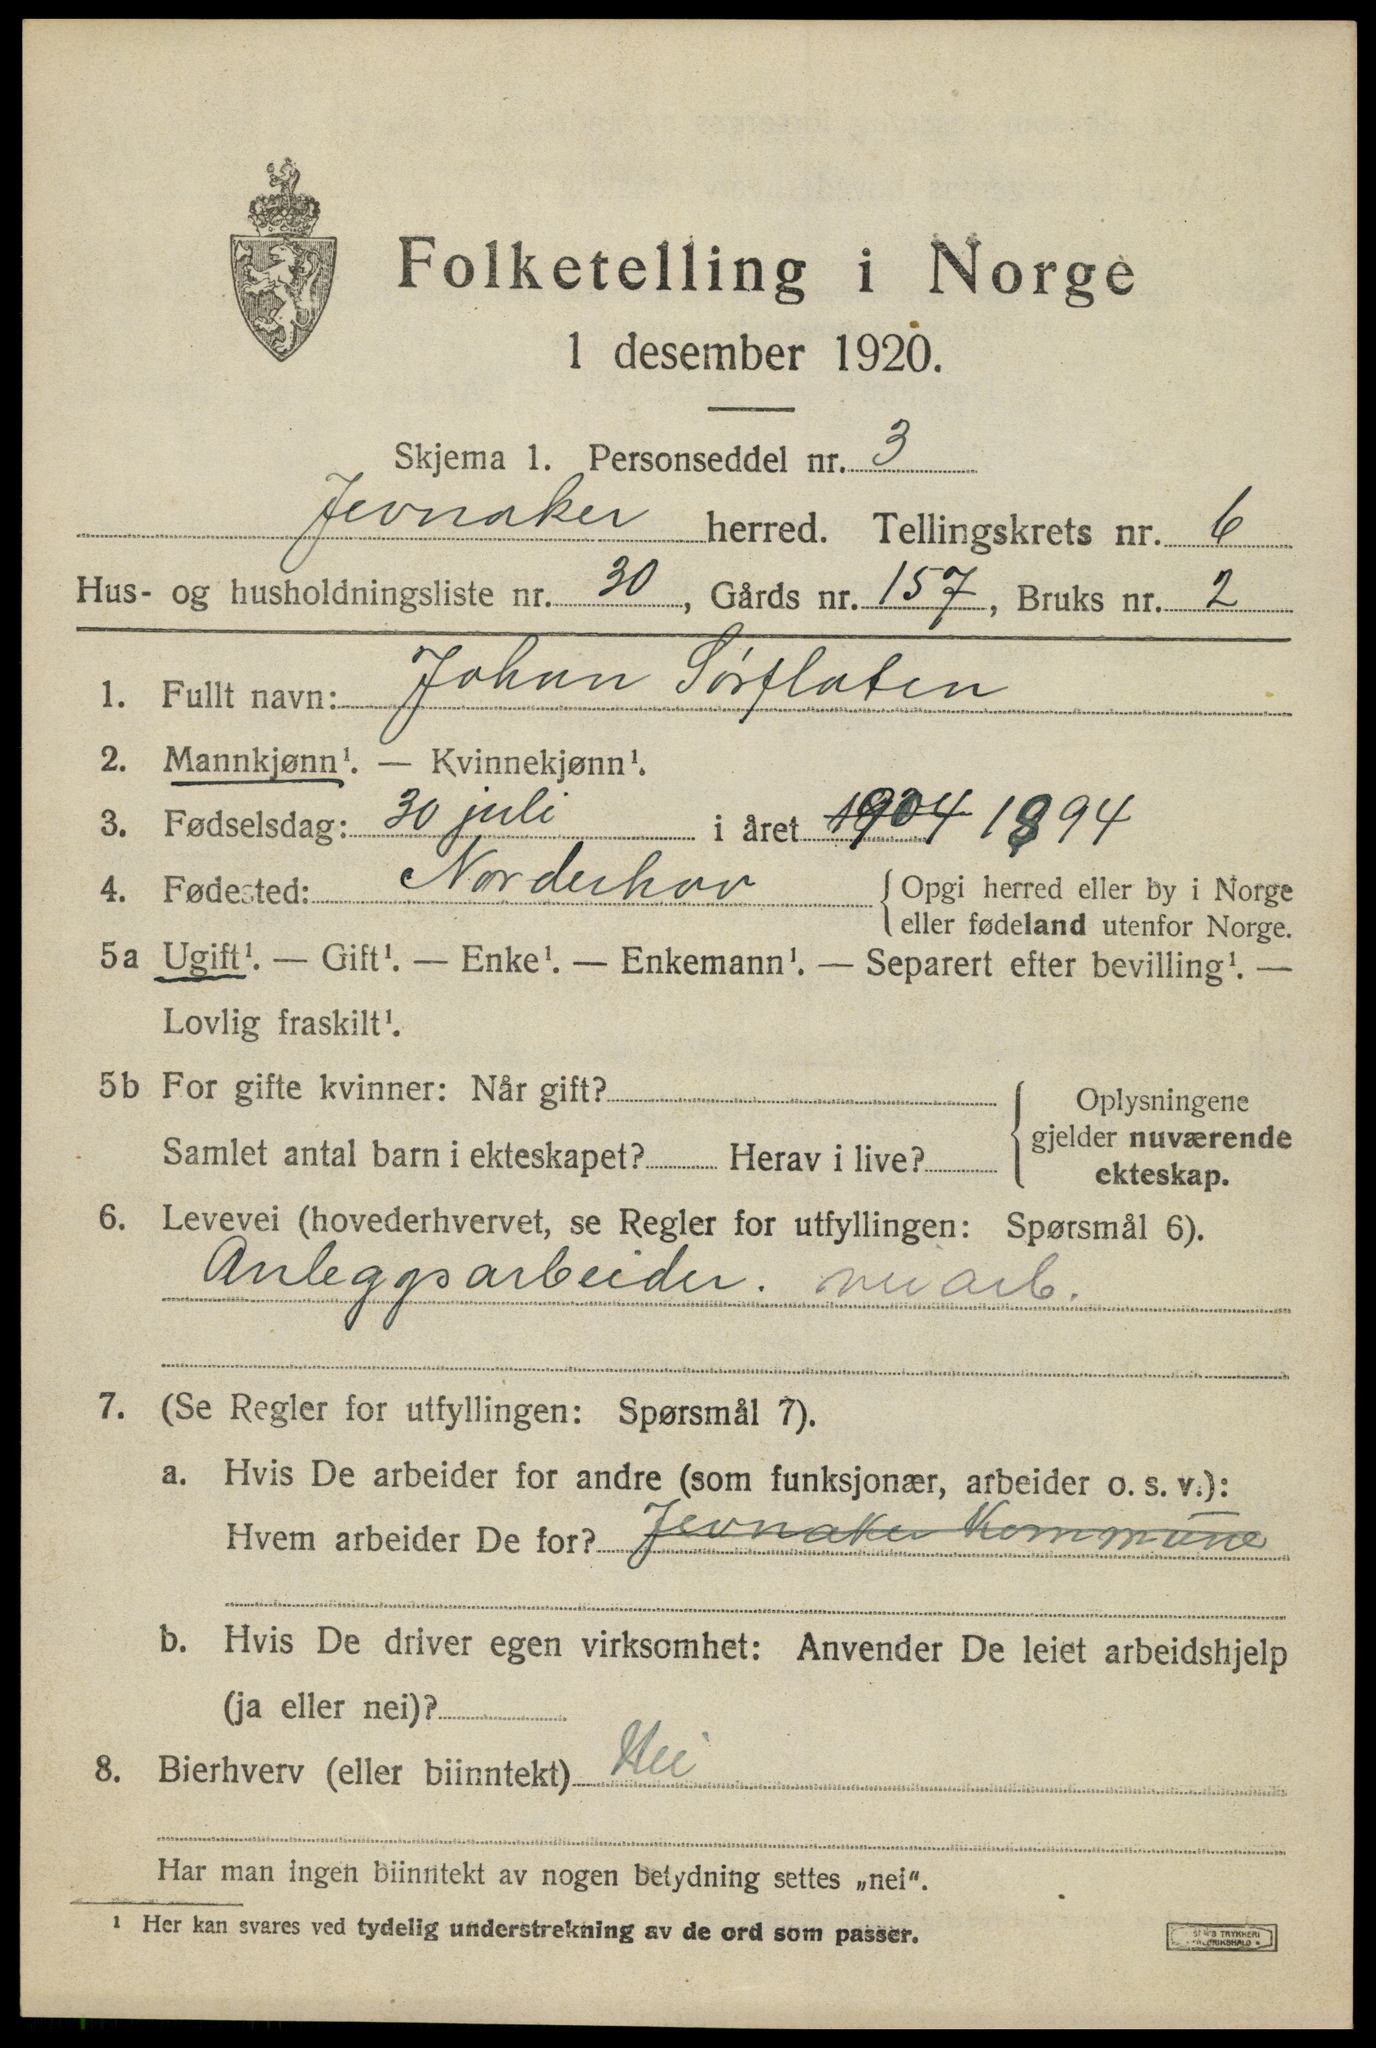 Folketelling i Norge
1 desember 1920.
Skjema 1. Personseddel nr. 3
Jevnaker herred. Tellingskrets nr. 6
Hus- og husholdningsliste nr. 30, Gårds nr. 157, Bruks nr. 2
1. Fullt navn: Johan Sørflaten
2. Mannkjønn¹. — Kvinnekjønn¹.
3. Fødselsdag: 30 juli i året 1904 1894
4. Fødested: Norderhov {Opgi herred eller by i Norge
eller fødeland utenfor Norge.
5a Ugift¹. — Gift¹. — Enke¹. — Enkemann¹. — Separert efter bevilling¹. —
Lovlig fraskilt¹.
5b For gifte kvinner: Når gift?
Samlet antal barn i ekteskapet? Herav i live?
Oplysningene
gjelder nuværende
ekteskap.
6. Levevei (hovederhvervet, se Regler for utfyllingen: Spørsmål 6).
Anleggsarbeider. veiarb.
7. (Se Regler for utfyllingen: Spørsmål 7).
a. Hvis De arbeider for andre (som funksjonær, arbeider o. s. v.):
Hvem arbeider De for? Jevnaker Kommune
b. Hvis De driver egen virksomhet: Anvender De leiet arbeidshjelp
(ja eller nei)?
8. Bierhverv (eller biinntekt) Nei
Har man ingen biinntekt av nogen betydning settes „nei“.
¹ Her kan svares ved tydelig understrekning av de ord som passer.
TRYKKERI